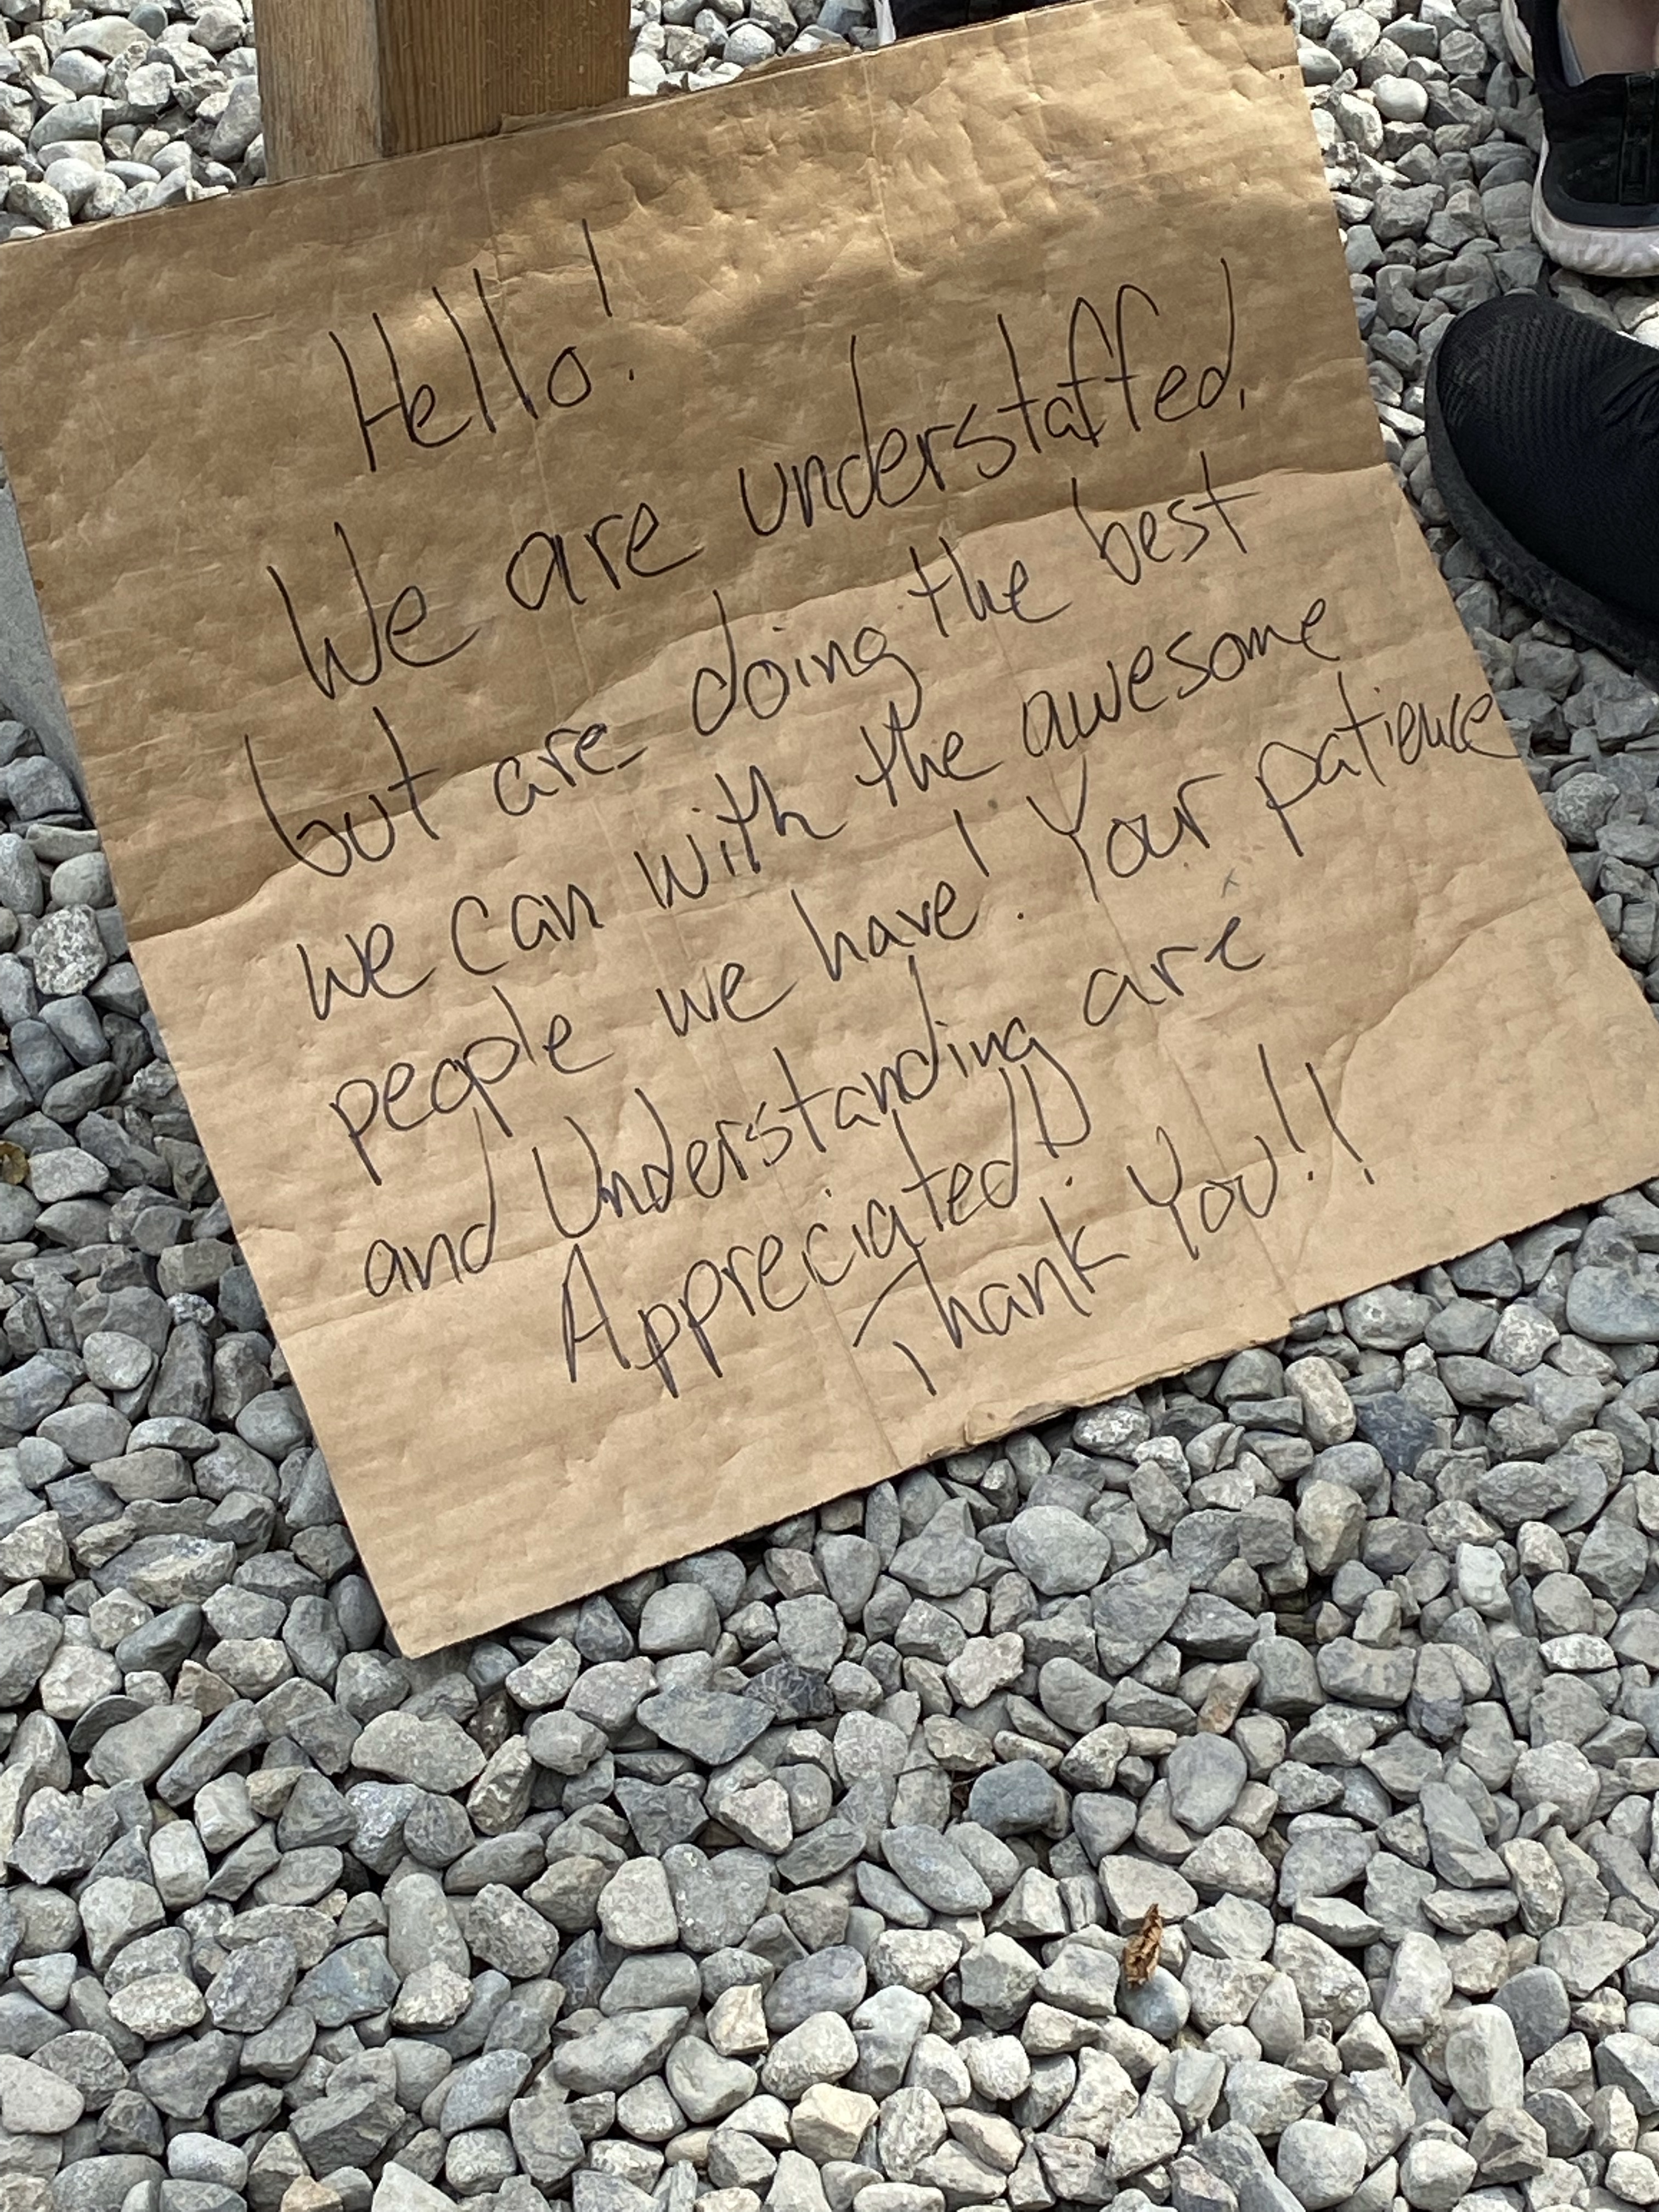 Hello!
We are understaffed,
but are doing the best
we can with the awesome
people we have! Your patience
and Understanding are
Appreciated!!
Thank You!!